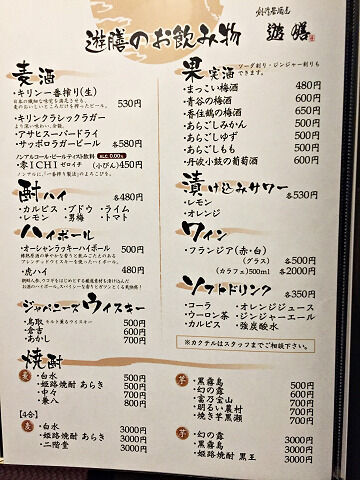 創作居酒屋
遊膳
遊膳のお飲み物
麦酒
・キリン一番搾り(生) 530円
・キリンクラシックラガー
・アサヒスーパードライ
・サッポロラガービール 各580円
ノンアルコール・ビールテイスト飲料 ALC.0.00%
・零ICHI ゼロイチ (小びん)450円
酎ハイ 各480円
・カルピス ・ブドウ ・ライム
・レモン ・男梅 ・トマト
ハイボール
・オーシャンラッキーハイボール 500円
・虎ハイ 480円
ジャパニーズウイスキー
・鳥取 500円
・倉吉 600円
・あかし 700円
焼酎
麦
・白水 500円
・姫路焼酎 あらき 500円
・中々 700円
・兼八 800円
【4合】
麦
・白水 3000円
・姫路焼酎 あらき 3000円
・二階堂 3000円
果実酒 ソーダ割り・ジンジャー割りも
できます。
・まっこい梅酒 480円
・青谷の梅酒 600円
・香住鶴の梅酒 650円
・あらごしみかん 500円
・あらごしゆず 500円
・あらごしもも 500円
・丹波小鼓の葡萄酒 600円
漬け込みサワー 各530円
・レモン
・オレンジ
ワイン
・フランジア(赤・白)
(グラス) 各500円
(カラフェ)500ml 各2000円
ソフトドリンク 各350円
・コーラ ・オレンジジュース
・ウーロン茶 ・ジンジャーエール
・カルピス ・強炭酸水
※カクテルはスタッフまでご相談下さい。
芋
・黒霧島 500円
・幻の露 500円
・富乃宝山 700円
・明るい農村 700円
・焼き芋黒瀬 700円
芋
・幻の露 3000円
・黒霧島 3000円
・姫路焼酎 黒王 3000円